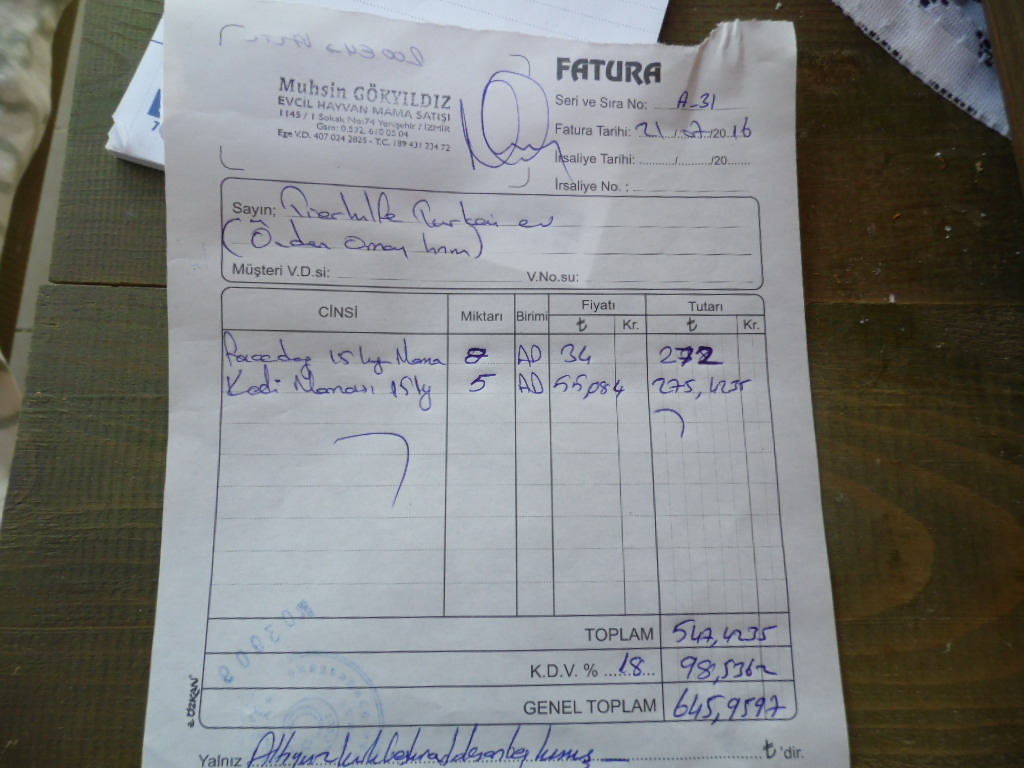 Muhsin GÖKYILDIZ
EVCİL HAYVAN MAMA SATIŞI
1145 / 1 Sokak No:74 Yenişehir / İZMİR
Gsm: 0.532. 610 05 04
Ege V.D. 407 024 2825 - T.C. 189 431 234 72
FATURA
Seri ve Sıra No: A-31
Fatura Tarihi: 21/07/2016
İrsaliye Tarihi: ........../........./20.......
İrsaliye No. :
Sayın;
Müşteri V.D.si: V.No.su:
CİNSİ Miktarı Birimi Fiyatı Tutarı
₺ Kr. ₺ Kr.
15 kg Mama 8 AD 34 272
Kedi Maması 15 kg 5 AD 55,084 275,4235
TOPLAM 547,4235
K.D.V. % 18 98,5362
GENEL TOPLAM 645,9597
ÖZKAN
Yalnız ₺'dir.